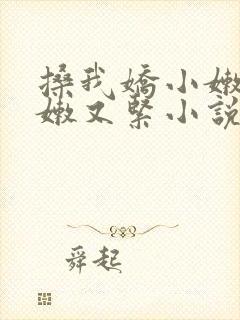 搡我嬌小嫩
嫩又緊小說
舜起